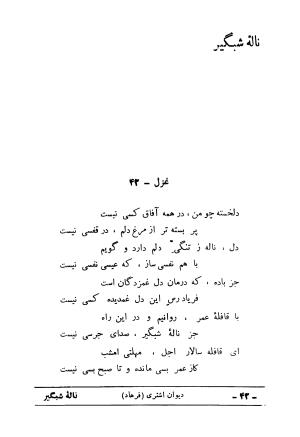 نالهٔ شبگیر
غزل - ۴۳
دلخسته چو من ، در همه آفاق کسی نیست
پر بسته تر از مرغ دلم ، در قفسی نیست
دل ، ناله ز تنگیّ دلم دارد و گویم
با هم نفسی ساز ، که عیسی نفسی نیست
جز باده ، که درمان دل غمزدگان است
فریادرس این دل غمدیده کسی نیست
با قافلهٔ عمر ، روانیم و در این راه
جز نالهٔ شبگیر ، صدای جرسی نیست
ای قافله سالار اجل ، مهلتی امشب
کاز عمر بسی مانده و تا صبح بسی نیست
- ۴۳ -
دیوان اشتری (فرهاد)
نالهٔ شبگیر